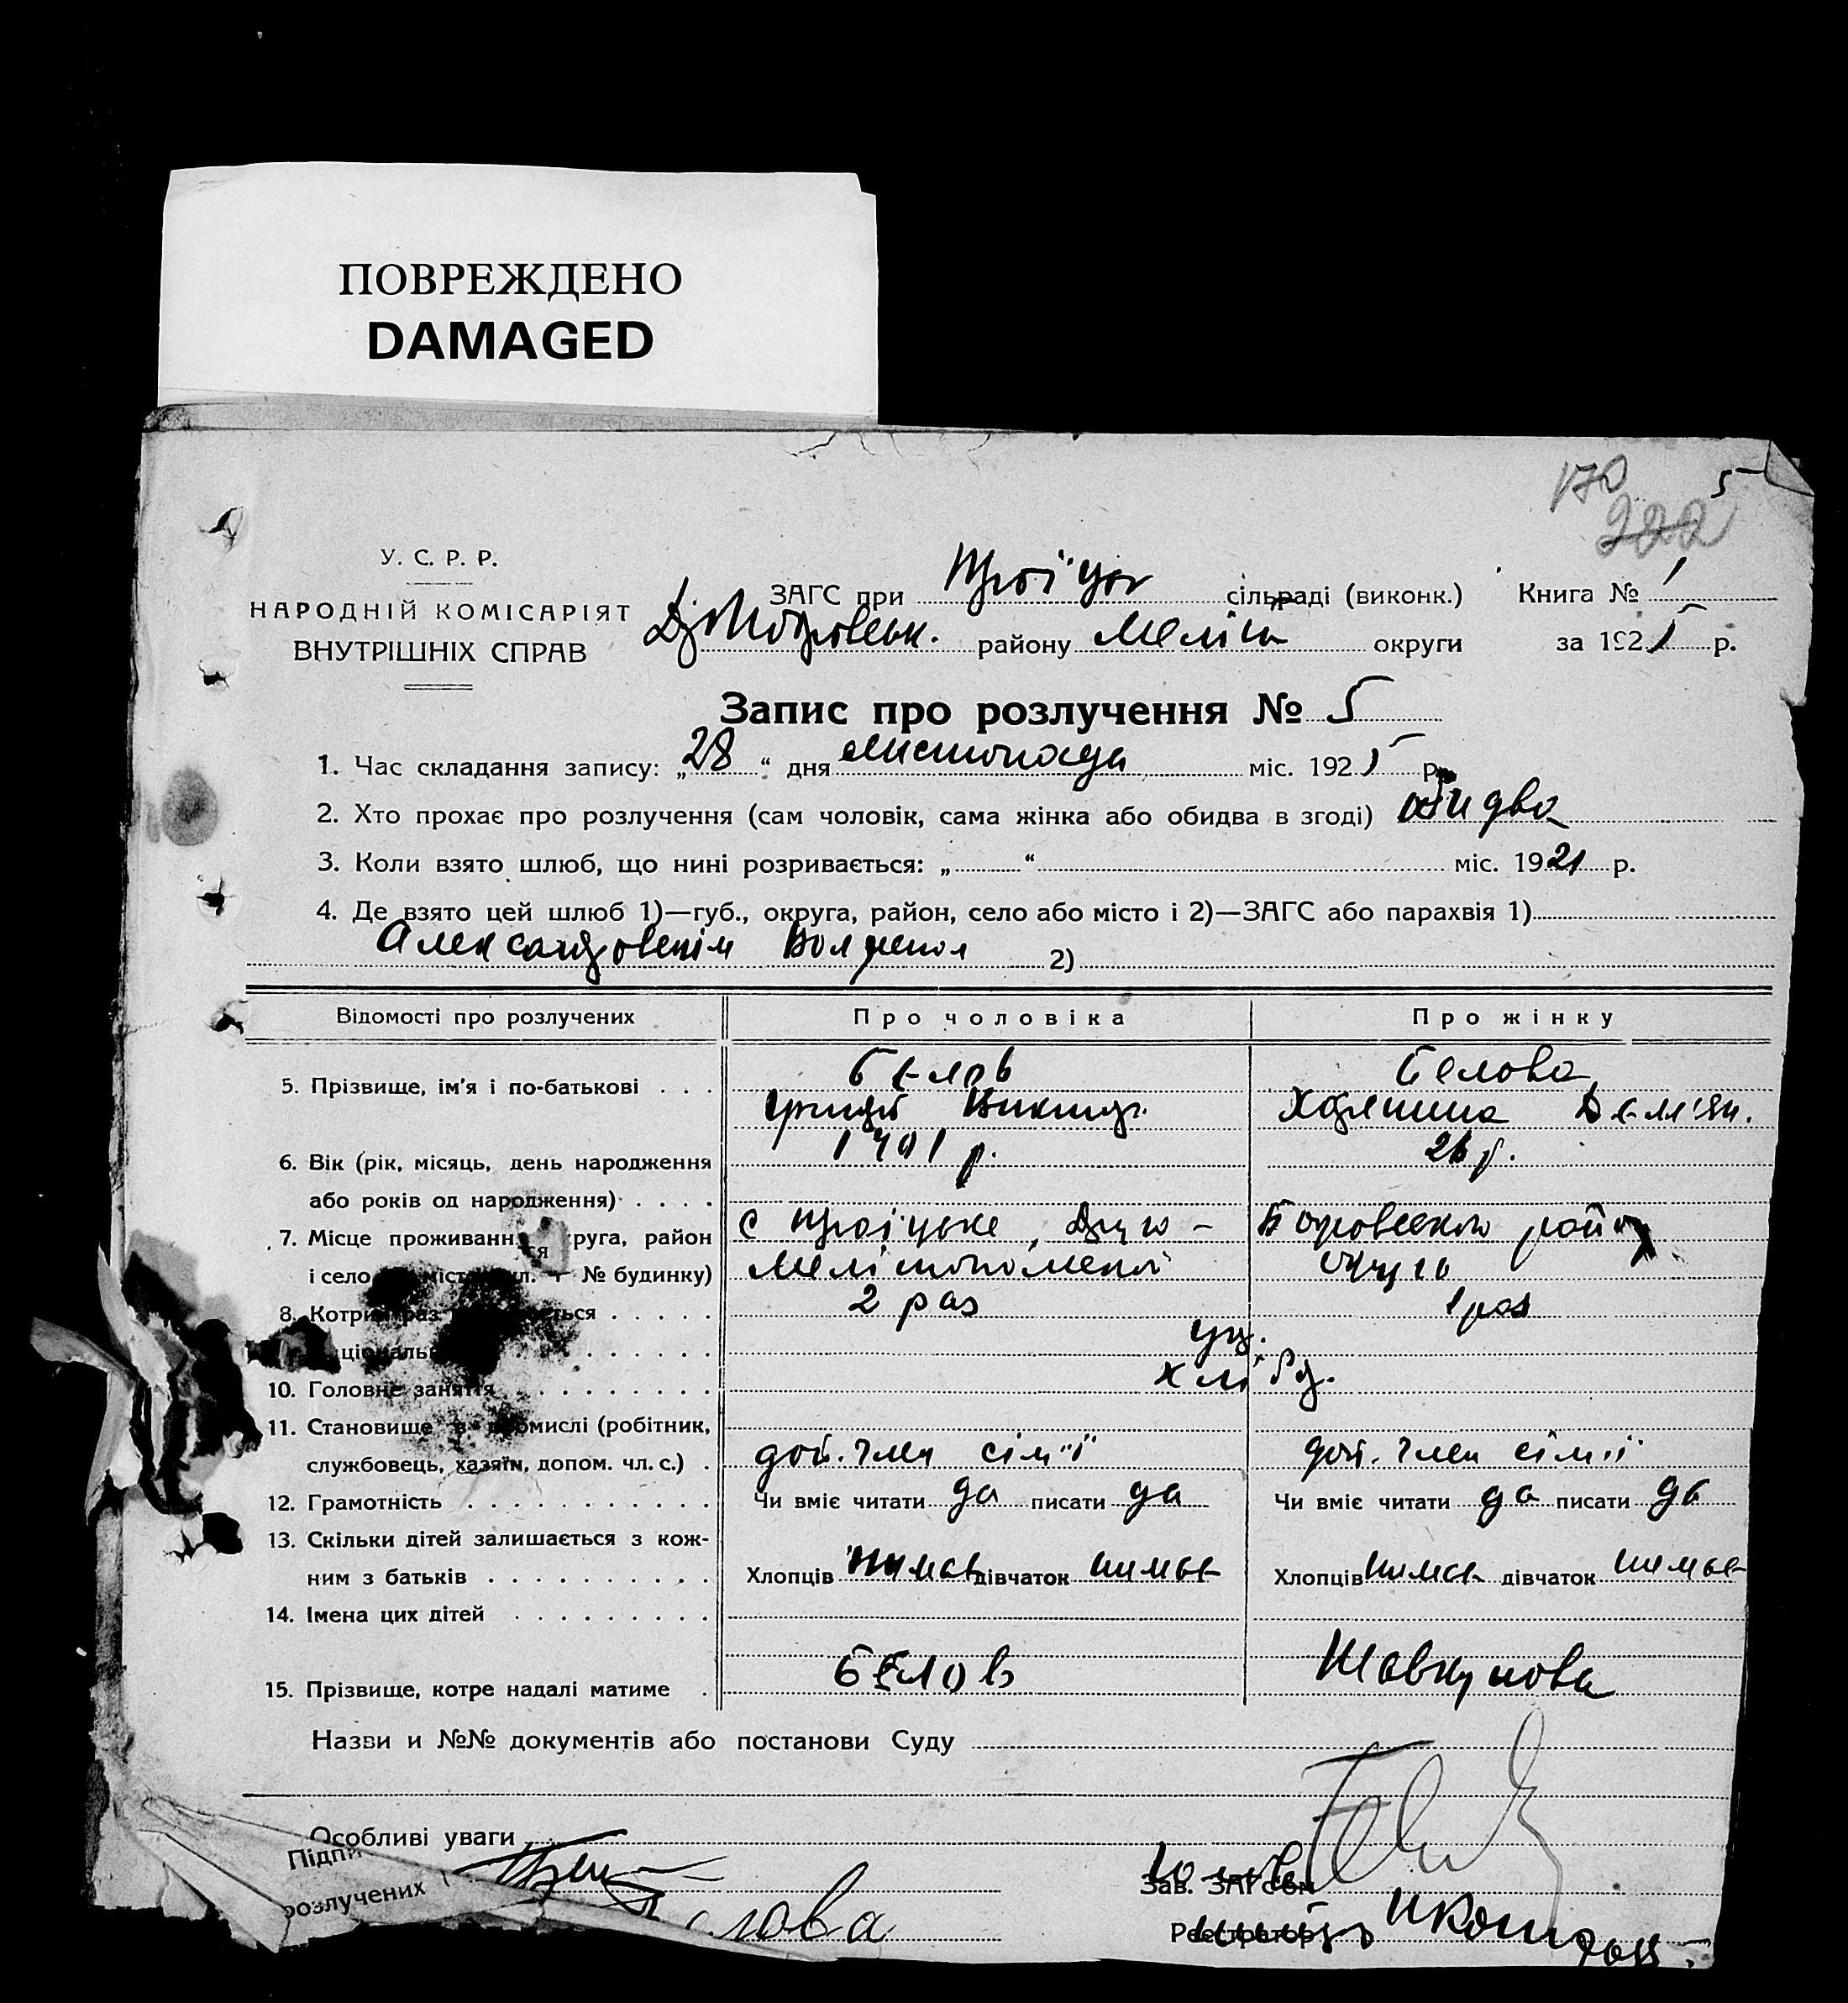 ПОВРЕЖДЕНО
DAMAGED
170 5
222
У. С. Р. Р.
НАРОДНІЙ КОМІСАРІЯТ
ВНУТРІШНІХ СПРАВ
ЗАГС при Троїцьк сільраді (виконк.) Книга № 1
району Меліт округи за 1925 р.
Запис про розлучення № 5
1. Час складання запису: „28“ дня листопада міс. 1925 р.
2. Хто прохає про розлучення (сам чоловік, сама жінка або обидва в згоді) обидва
3. Коли взято шлюб, що нині розривається: „ “ міс. 1921 р.
4. Де взято цей шлюб 1)—губ., округа, район, село або місто і 2)—ЗАГС або парахвія 1)
2)
Відомості про розлучених Про чоловіка Про жінку
5. Прізвище, ім'я і по-батькові . . . Бєлов Бєлова
Дем'ян.
1901 р. 26 р.
6. Вік (рік, місяць, день народження
або років од народження) . . . .
7. Місце проживання округа, район с Троїцьке,
і село № будинку)
8. Котрий раз . . . . . 2 раз 1 раз
укр.
10. Головне заняття . . . . . . . . . хлібр.
11. Становище в промислі (робітник,
службовець, хазяїн, допом. чл. с.) . доп. член сім'ї доп. член сім'ї
12. Грамотність . . . . . . . . . . . Чи вміє читати да писати да Чи вміє читати да писати да
13. Скільки дітей залишається з кож-
ним з батьків . . . . . . . . . . Хлопців нимає дівчаток нимає Хлопців нимає дівчаток нимає
14. Імена цих дітей . . . . . . . . .
15. Прізвище, котре надалі матиме . Бєлов Шовкунова
Назви и №№ документів або постанови Суду
Особливі уваги
Підпи
розлучених
Зав. ЗАГСом
лова
Реєстратор